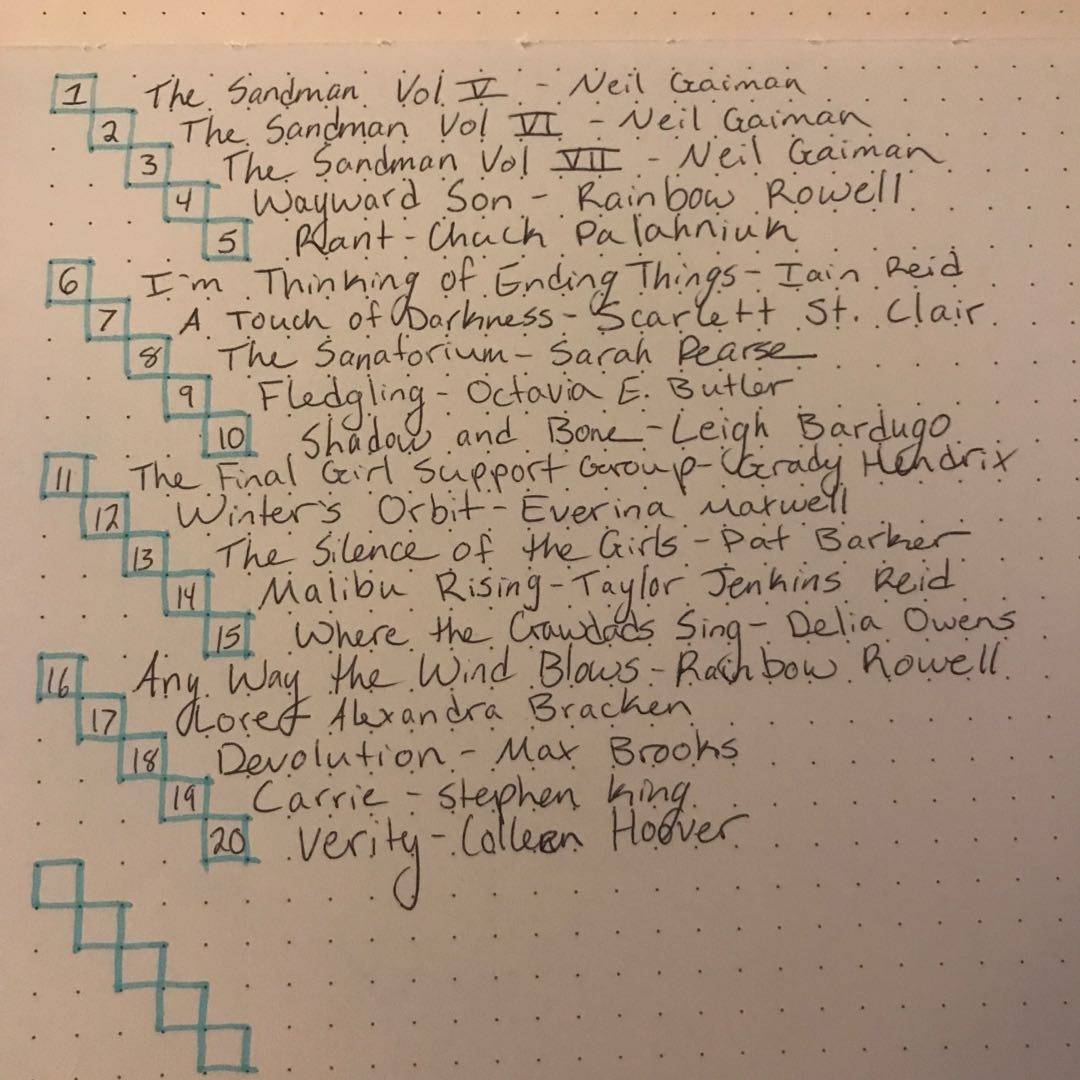 1 The Sandman Vol V - Neil Gaiman
2 The Sandman Vol VI - Neil Gaiman
3 The Sandman Vol VII - Neil Gaiman
4 Wayward Son - Rainbow Rowell
5 Rant - Chuck Palahniuk
6 I'm Thinking of Ending Things - Iain Reid
7 A Touch of Darkness - Scarlett St. Clair
8 The Sanatorium - Sarah Pearse
9 Fledgling - Octavia E. Butler
10 Shadow and Bone - Leigh Bardugo
11 The Final Girl Support Group - Grady Hendrix
12 Winter's Orbit - Everina Maxwell
13 The Silence of the Girls - Pat Barker
14 Malibu Rising - Taylor Jenkins Reid
15 Where the Crawdads Sing - Delia Owens
16 Any Way the Wind Blows - Rainbow Rowell
17 Lore - Alexandra Bracken
18 Devolution - Max Brooks
19 Carrie - Stephen King
20 Verity - Colleen Hoover